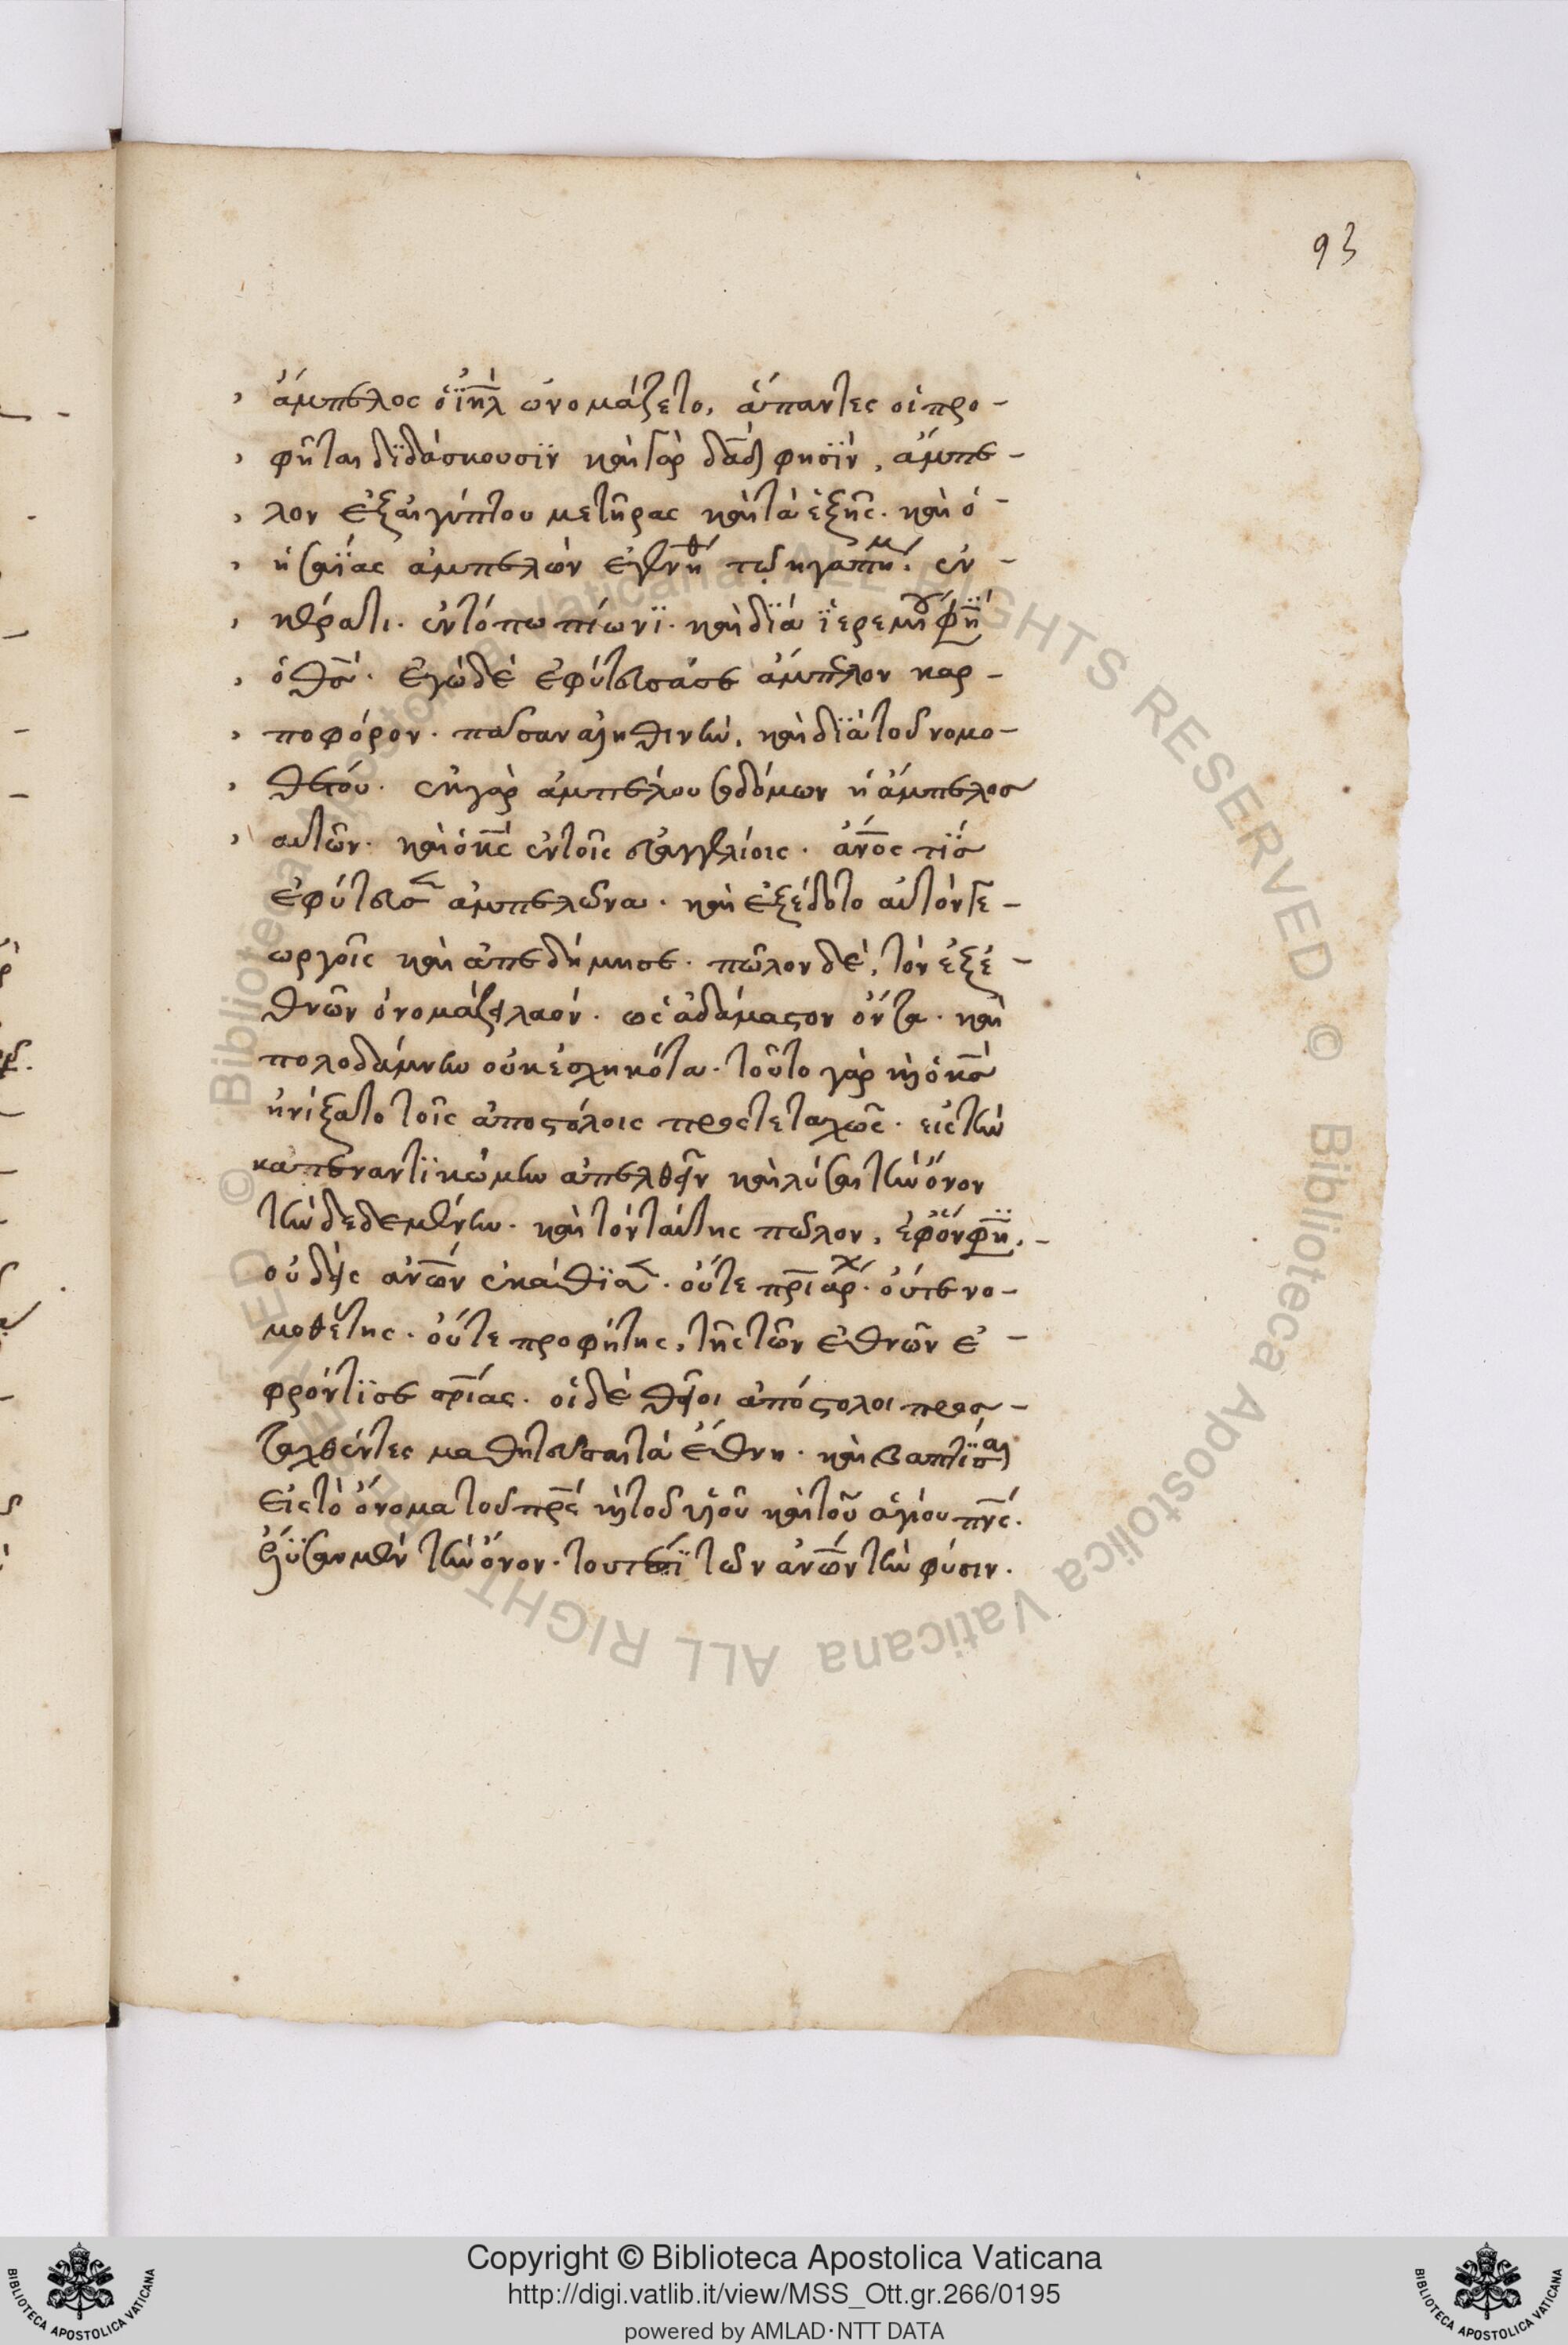 93
, ἄμπελος ὁ ἰη̅λ ὠνομάζετο, ἅπαντες οἱ προ-
, φῆται διδάσκουσϊν καὶ γὰρ δα̅δ φησϊν, ἄμπε-
, λον ἐξ αἰγύπτου μετῆρας καὶ τὰ ἑξῆς. καὶ ὁ -
, ἡσαΐας ἀμπελὼν ἐγενήθη τῷ ἠγαπημ. ἐν -
, κέρατι. ἐν τόπω πίωνϊ. καὶ δϊὰ ϊερεμίου φη
, ὁ θσ̅. ἐγὼ δὲ ἐφύτευσά σε ἄμπελον καρ -
, ποφόρον. πᾶσαν ἀληθινὴν, καὶ δϊὰ τοῦ νομο-
, θέτου. ἐκ γὰρ ἀμπέλου σοδόμων ἡ ἄμπελος
, αὐτῶν. καὶ ὁ κ̅ς ἐν τοῖς εὐαγγελίοις. ἀν̅ος τϊς
ἐφύτευσεν ἀμπελῶνα. καὶ ἐξέδοτο αὐτὸν γε -
ωργοῖς καὶ ἀπεδήμησε. πῶλον δὲ, τὸν ἐξ ἐ -
θνῶν ὀνομάζει λαόν. ὡς ἀδάμαστον ὄντα. καὶ
πολοδάμνην οὐκ ἐσχηκότα. τοῦτο γὰρ καὶ ὁ κ̅σ
ἠνίξατο τοῖς ἀποστόλοις προστεταχῶς. εἰς τὴν
κατεναντϊ κώμην ἀπελθεῖν καὶ λύσαι τὴν ὄνον
τὴν δεδεμένην. καὶ τὸν ταύτης πῶλον, ἐφ ὃν φη, -
οὐδεὶς ἀν̅ων ἐκάθϊσεν. οὔτε πρ̅ιάρχ. οὔτε νο -
μοθέτης. οὔτε προφήτης, τῆς τῶν ἐθνῶν ἐ -
φρόντϊσε σρ̅ίας. οἱ δὲ θεῖοι ἀπόστολοι προσ -
ταχθέντες μαθητεῦσαι τὰ ἔθνη. καὶ βαπτϊσαι
εἰς τὸ ὄνομα τοῦ πρ̅ς καὶ τοῦ υἱοῦ καὶ τοῦ ἁγίου πν̅ς.
ἔλϋσαν μὲν τὴν ὄνον. τουτέστϊ τῶν ἀν̅ων τὴν φύσιν.
© Biblioteca Apostolica Vaticana ALL RIGHTS RESERVED © Biblioteca Apostolica Vaticana ALL RIGHTS RESERVED
Copyright © Biblioteca Apostolica Vaticana
http://digi.vatlib.it/view/MSS_Ott.gr.266/0195
powered by AMLAD·NTT DATA
BIBLIOTECA APOSTOLICA VATICANA
BIBLIOTECA APOSTOLICA VATICANA